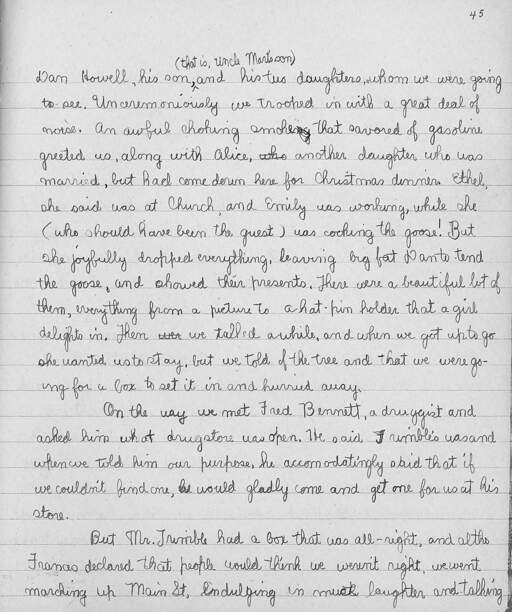 45
(that is, Uncle Mart's son)
Dan Howell, his son, and his two daughters, whom we were going
to see. Unceremoniously we trooped in with a great deal of
noise. An awful choking smoke that savored of gasoline
greeted us, along with Alice, who another daughter who was
married, but had come down here for Christmas dinner. Ethel,
she said was at Church, and Emily was working, while she
(who should have been the guest) was cooking the goose! But
she joyfully dropped everything, leaving big fat Dan to tend
the goose, and showed their presents. There were a beautiful lot of
them, everything from a picture to a hat-pin holder that a girl
delights in. Then we talked awhile, and when we got up to go
she wanted us to stay, but we told of the tree and that we were go-
ing for a box to set it in and hurried away.
On the way we met Fred Bennett, a druggist and
asked him what drugstore was open. He said Trumble's was and
when we told him our purpose, he accomodatingly said that if
we couldn't find one, he would gladly come and get one for us at his
store.
But Mr. Trumble had a box that was all-right, and altho
Frances declared that people would think we weren't right, we went
marching up Main St, indulging in much laughter and talking